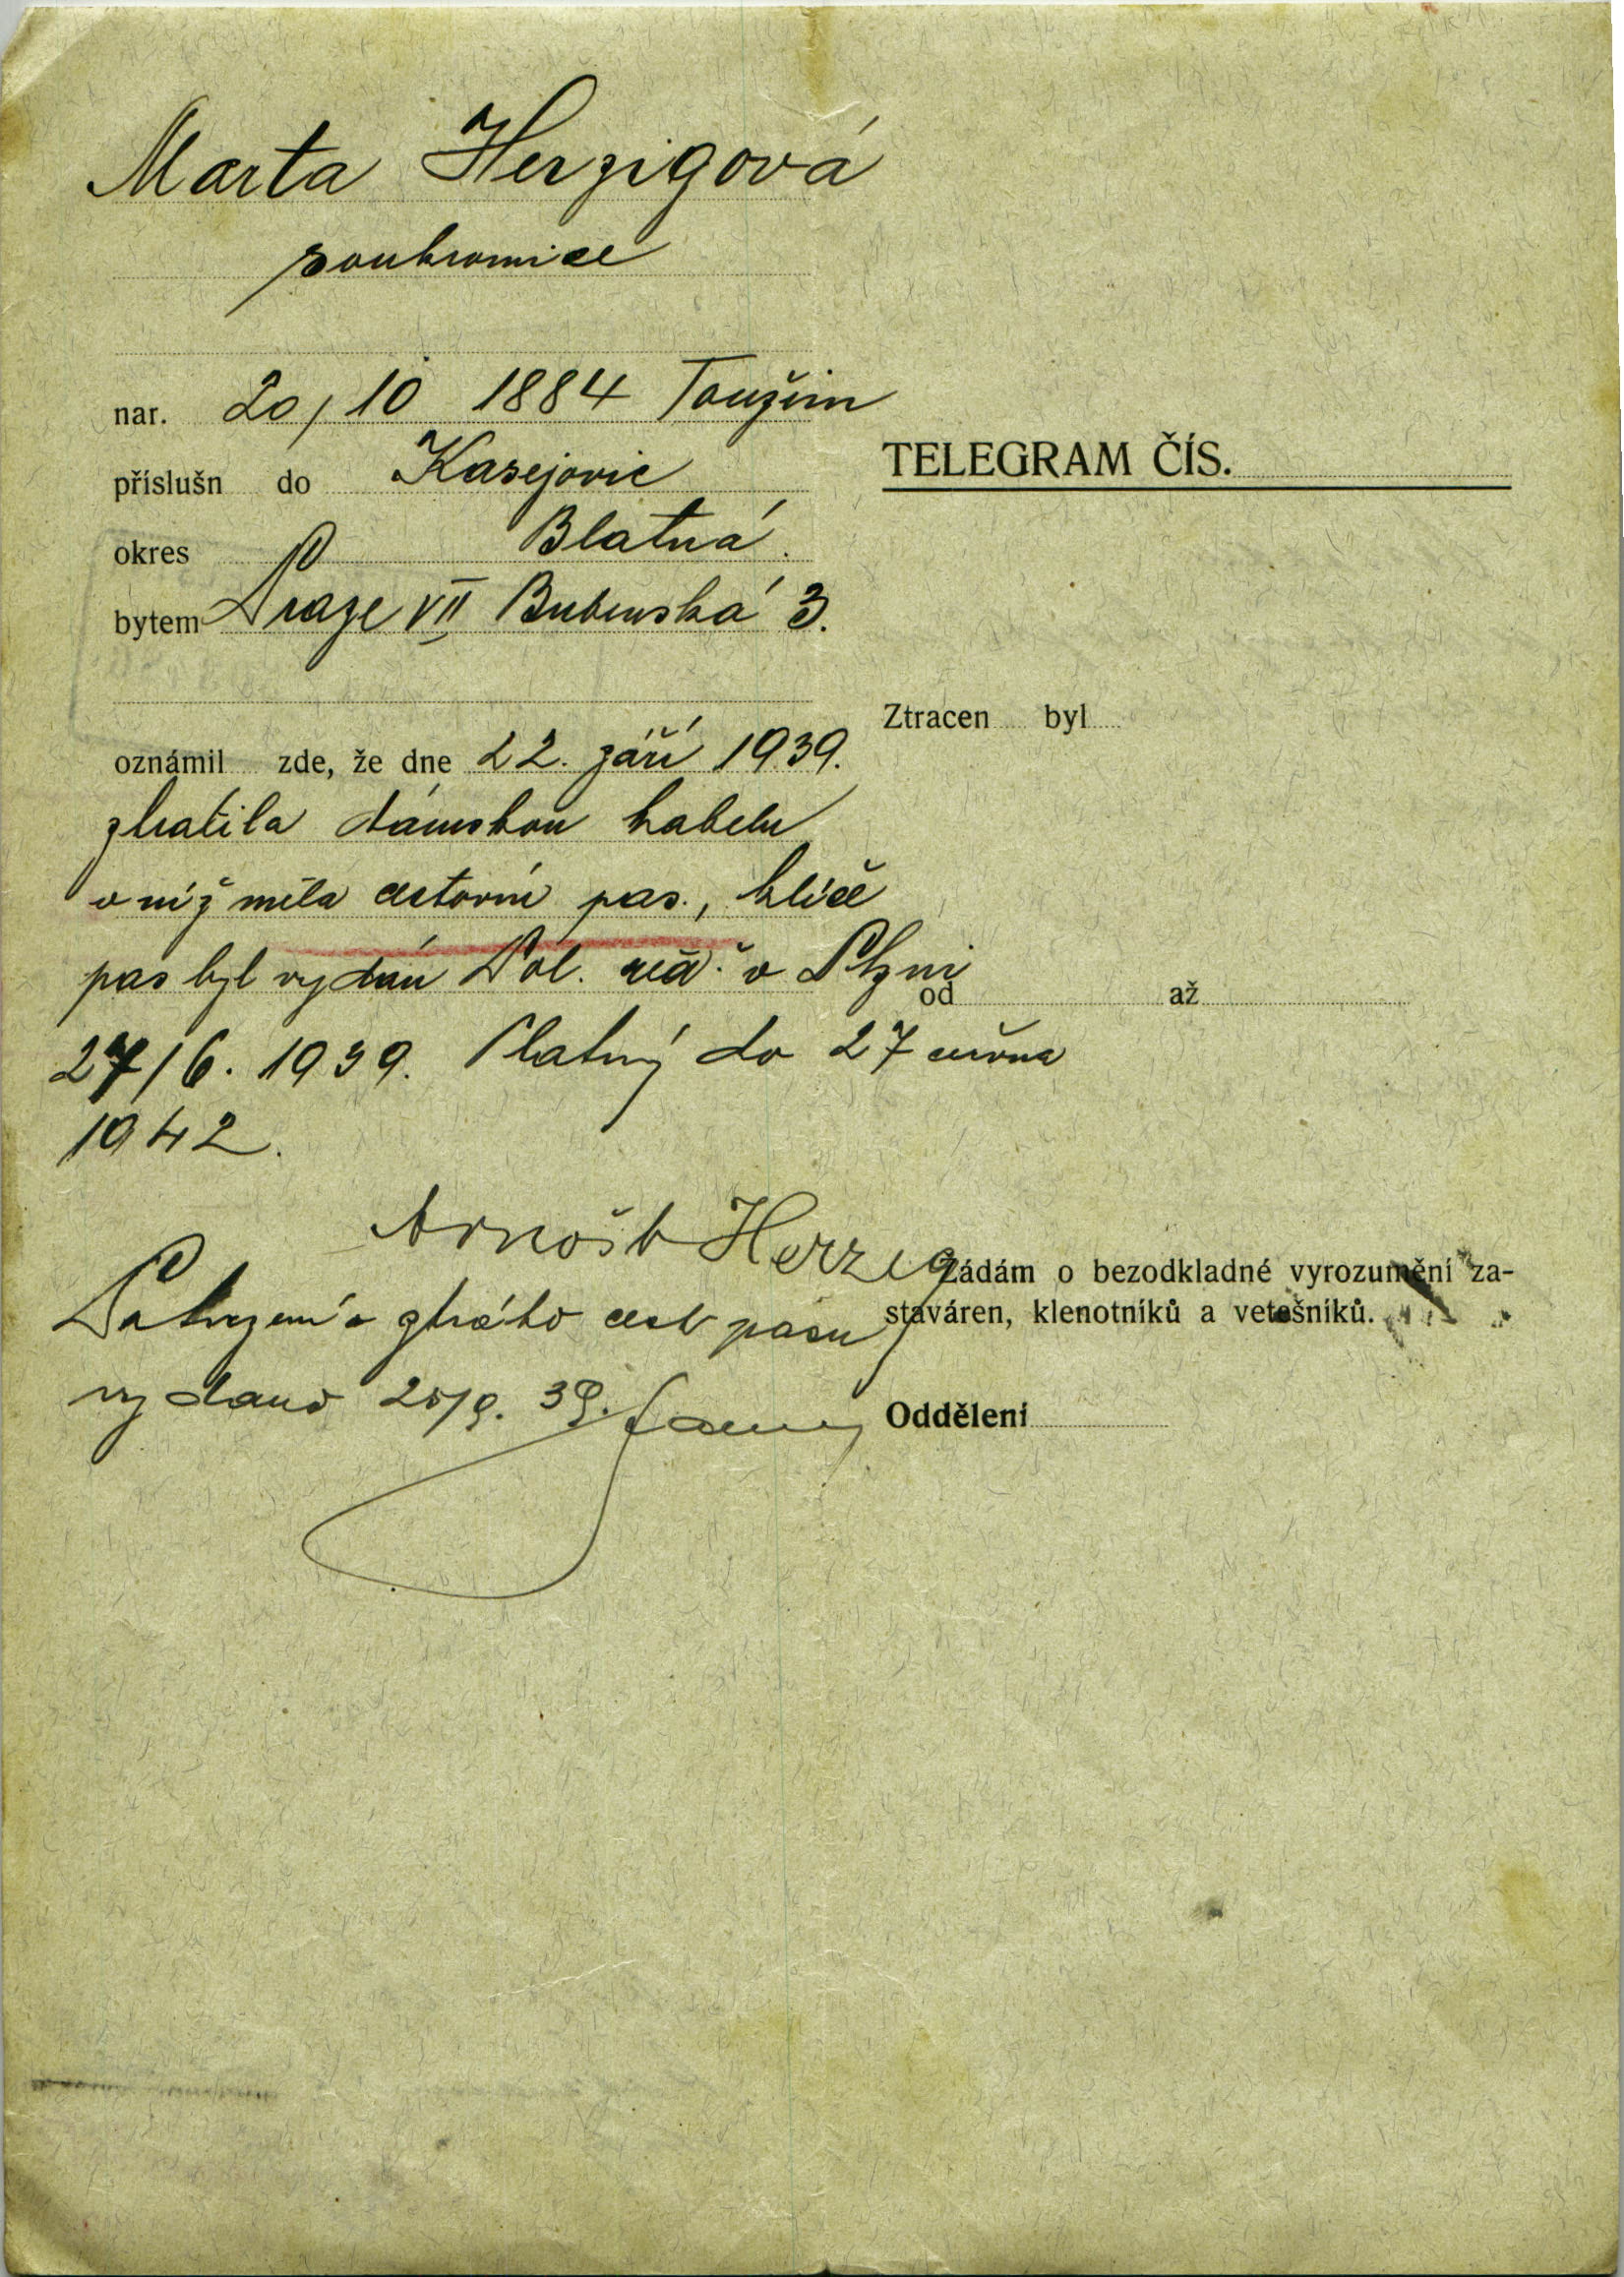 Marta Herzigová
soukromice
nar. 20/10 1884 Toužim
příslušn do Kasejovic
okres Blatná.
bytem Praze VII Bubenská 3.
oznámil zde, že dne 22. září 1939.
ztratila dámskou kabelu
v níž měla cestovní pas., klíče
pas byl vydán Pol. řed. v Plzni
27/6. 1939. Platný do 27 června
1942.
Arnošt Herzig
Potvrzení o ztrátě cest pasu
vydano 25/9. 39.
TELEGRAM ČÍS.
Ztracen byl
od až
Žádám o bezodkladné vyrozumění za-
staváren, klenotníků a vetešníků.
Oddělení